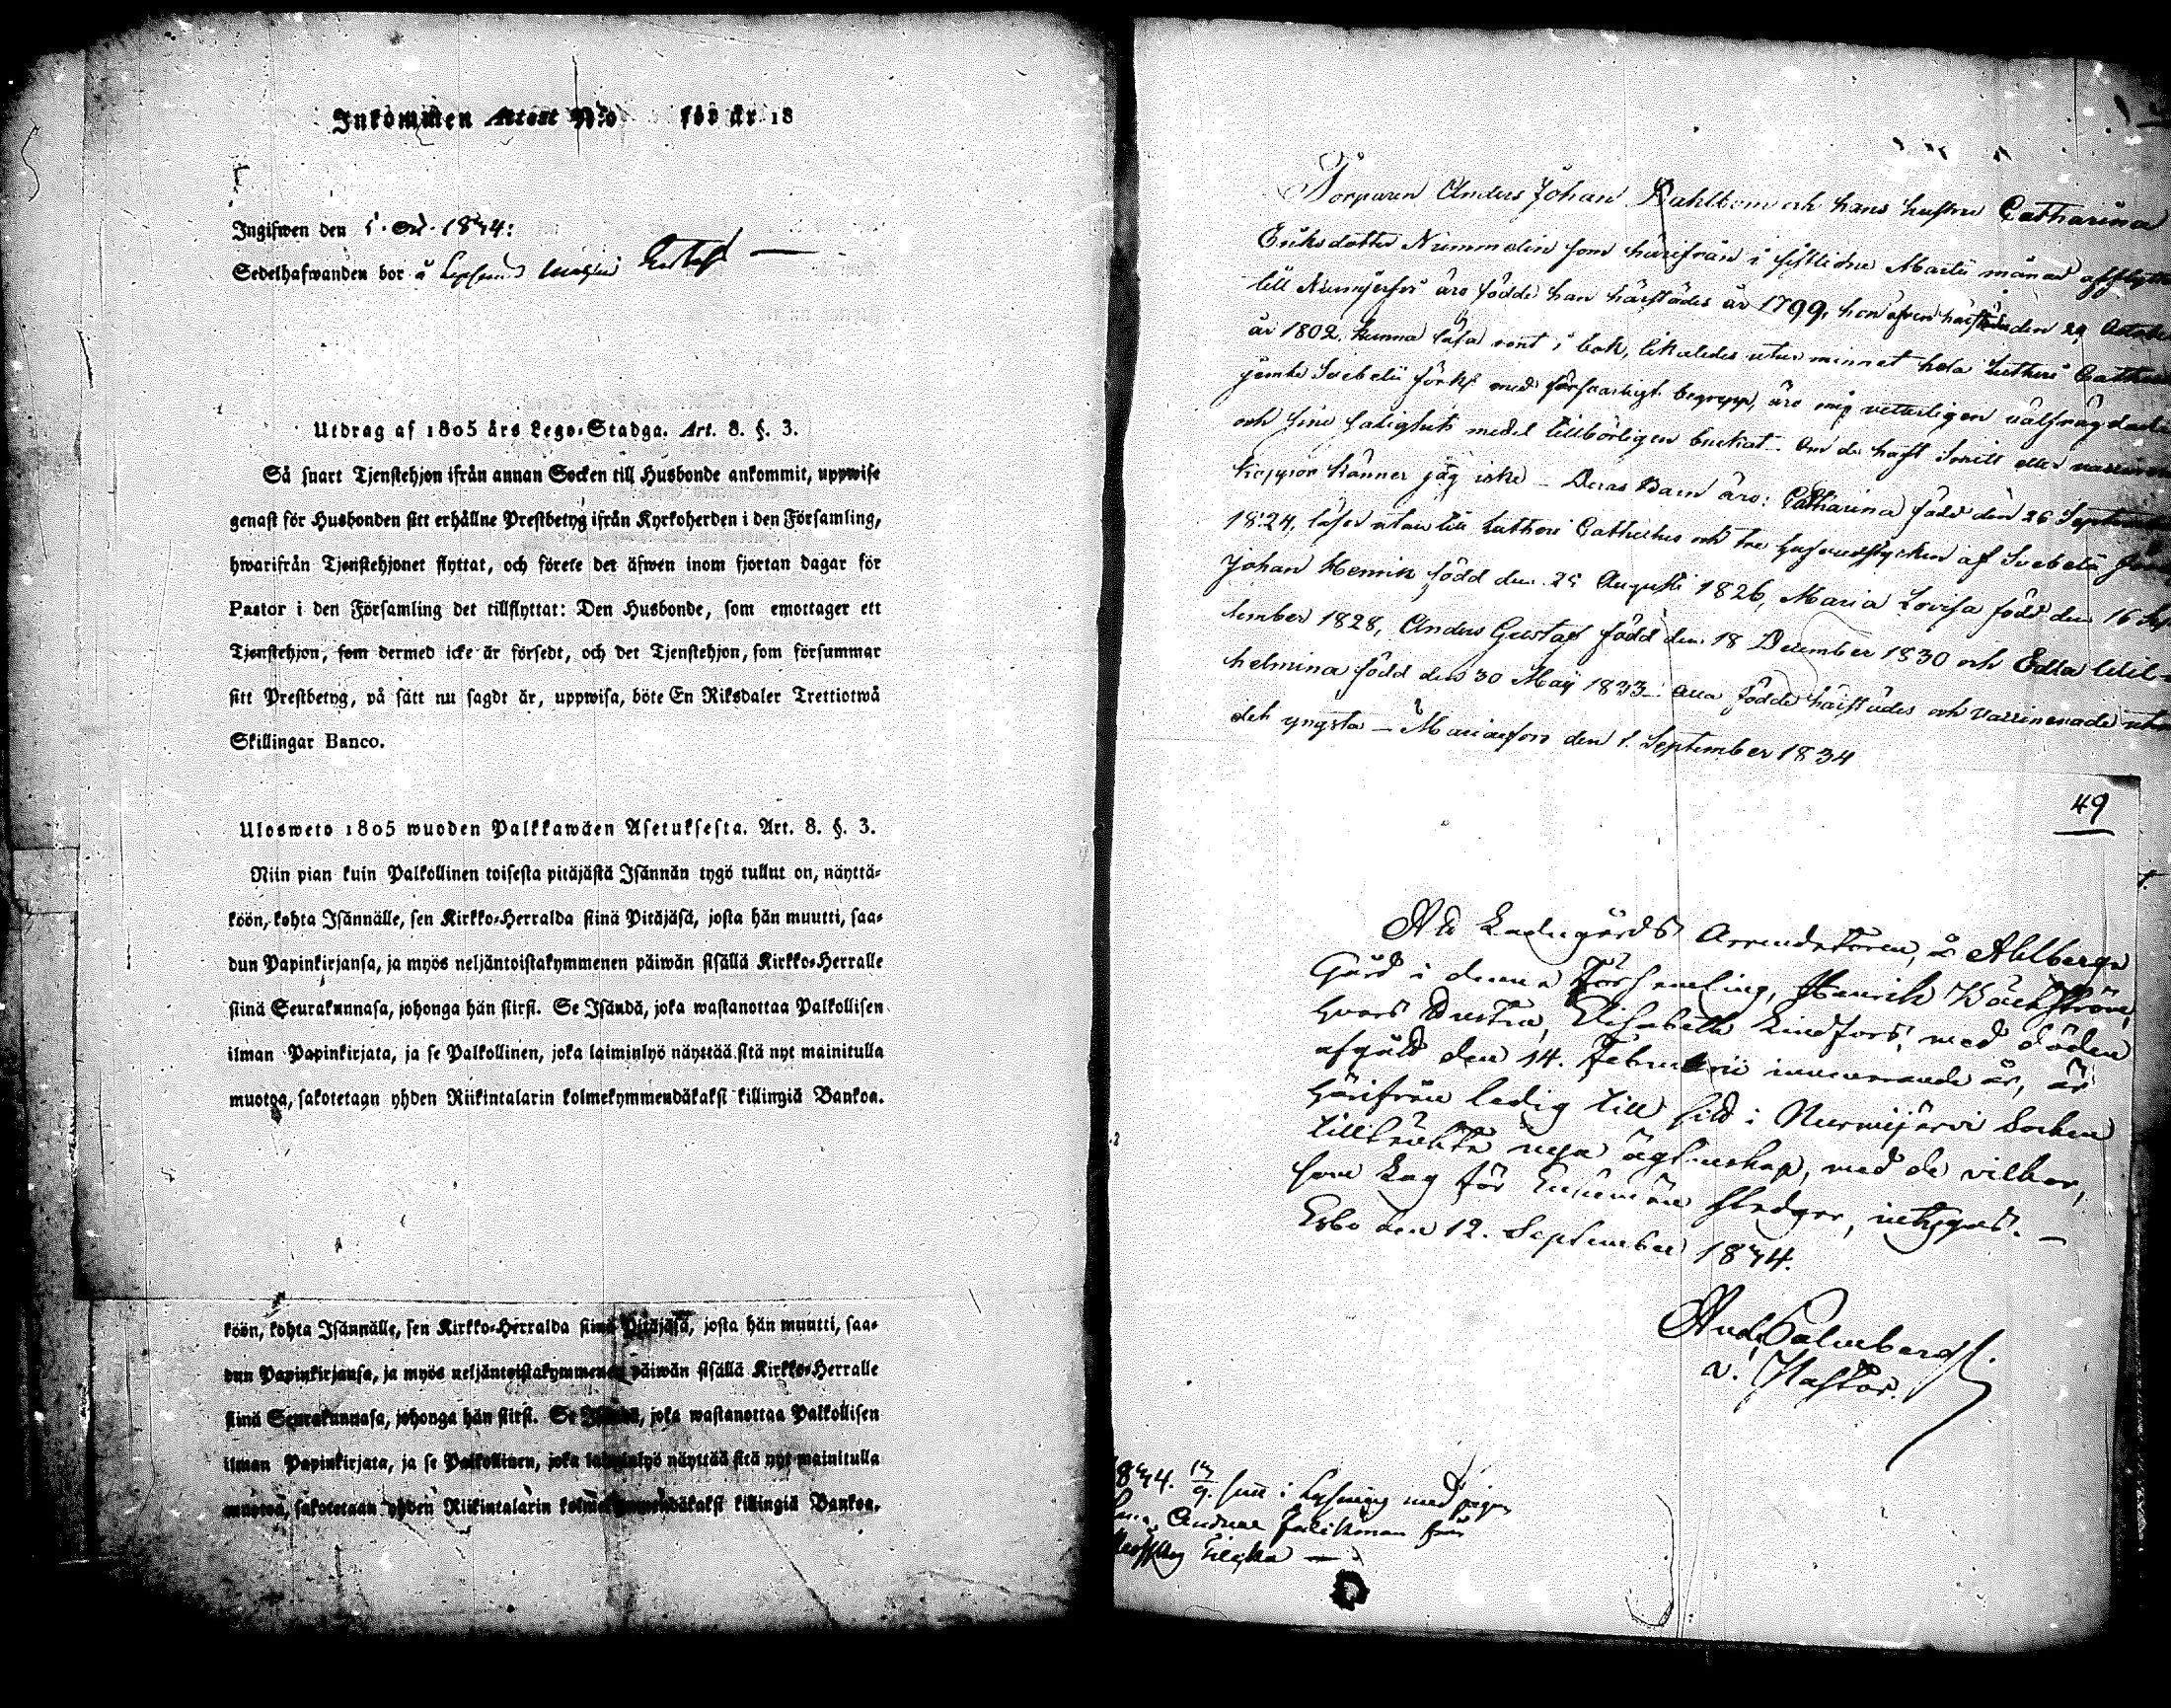 Inkommen Attest N:o för år 18
Ingifwen den 1. Oct. 1834:
Sedelhafwanden bor å
Utdrag af 1805 års Lego-Stadga. Art. 8. §. 3.
Så snart Tjenstehjon ifrån annan Socken till Husbonde ankommit, uppwise
genast för Husbonden sitt erhållne Prestbetyg ifrån Kyrkoherden i den Församling,
hwarifrån Tjenstehjonet flyttat, och förete det äfwen inom fjortan dagar för
Pastor i den Församling det tillflyttat: Den Husbonde, som emottager ett
Tjenstehjon, som dermed icke är försedt, och det Tjenstehjon, som försummar
sitt Prestbetyg, på sätt nu sagdt är, uppwisa, böte En Riksdaler Trettiotwå
Skillingar Banco.
Ulosweto 1805 wuoden Palkkawäen Asetuksesta. Art. 8. §. 3.
Niin pian kuin Palkollinen toisesta pitäjästä Isännän tygö tullut on, näyttä-
köön, kohta Isännälle, sen Kirkko-Herralda siinä Pitäjäsä, josta hän muutti, saa-
dun Papinkirjansa, ja myös neljäntoistakymmenen päiwän sisällä Kirkko-Herralle
siinä Seurakunnasa, johonga hän siirsi. Se Isändä, joka wastanottaa Palkollisen
ilman Papinkirjata, ja se Palkollinen, joka laiminlyö näyttää sitä nyt mainitulla
muotoa, sakotetaan yhden Riikintalarin kolmekymmendäkaksi killingiä Bankoa.
köön, kohta Isännälle, sen Kirkko-Herralda siinä Pitäjäsä, josta hän muutti, saa-
dun Papinkirjansa, ja myös neljäntoistakymmenen päiwän sisällä Kirkko-Herralle
siinä Seurakunnasa, johonga hän siirsi. Se Isändä, joka wastanottaa Palkollisen
ilman Papinkirjata, ja se Palkollinen, joka laiminlyö näyttää sitä nyt mainitulla
muotoa, sakotetaan yhden Riikintalarin kolmekymmendäkaksi killingiä Bankoa.
Torparen Anders Johan Dahlbom och hans hustru Catharina
Eriksdotter Nummelin som härifrån i sistlidne Martii månad afflytta
till Nurmijerfvi äro födde han härstädes år 1799, hon äfven härstädes den 29
år 1802. kunna läsa rent i bok, likaledes utur minnet hela Lutheri
jemte Svebelii förkl med försvarligt begrepp, äro mig vetterligen välfrägdade
och sine salighets medel tillbörligen brukat. Om de haft
koppor känner jag icke – Deras Barn äro: Catharina född den 26 September
1824, läser utan till Lutheri Catheches och tre hufvudstycken af Svebelii
Johan Henrik född den 25 Augusti 1826, Maria Lovisa född den 16 Sep-
tember 1828, Anders Gustaf född den 18 December 1830 och Edla Wil-
helmina född den 30 Maij 1833. alla födde härstädes och vaccinerade utom
det yngsta – Mariæfors den 1. September 1834
49
Ladugårds Arrendatoren, å Alberga
Gård i denna Församling, Henrik Bäckström,
hvars Hustru, Elisabeth Lindfors, med döden
afgått den 14. Februarii innevarande år, är
härifrån ledig till sitt i Nurmijärvi Socken
tillämnta nya ägtenskap, med de vilkor,
som Lag för Enkemän stadgar, intygas. –
Esbo den 12. September 1834.
And. Palmberg
v. Pastor.
1834. 13/9. sun i Lysning med pigan